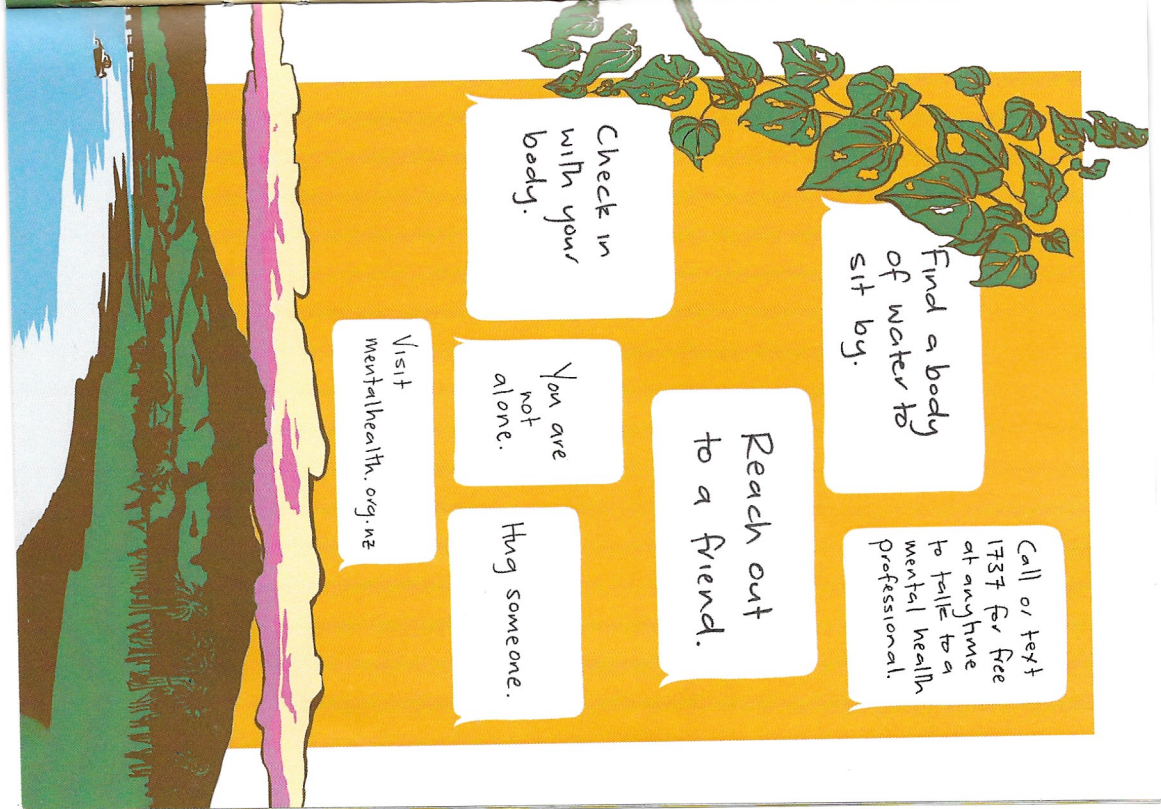 Find a body
of water to
sit by.
Call or text
1737 for free
at anytime
to talk to a
mental health
professional.
Reach out
to a friend.
Check in
with your
body.
You are
not
alone.
Hug someone.
Visit
mentalhealth.org.nz